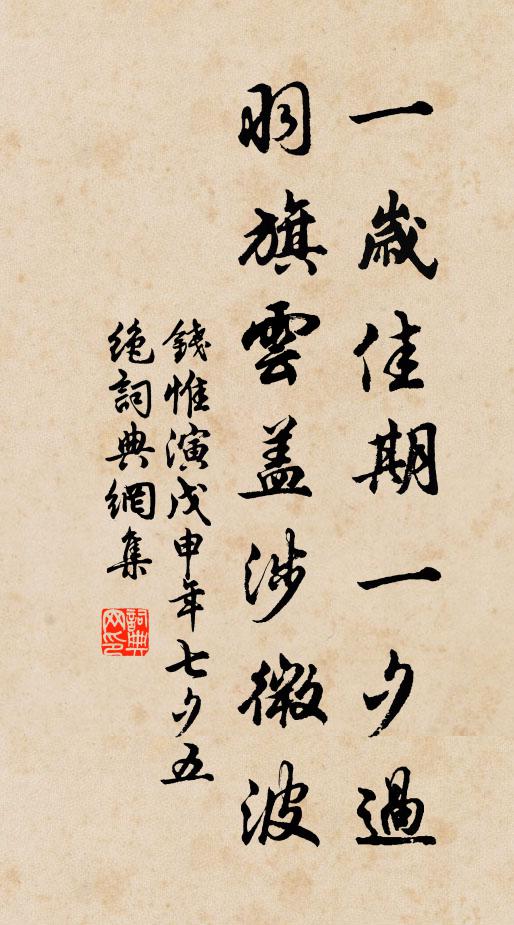 一歲佳期一夕過
羽旗雲蓋涉微波
錢惟演戊申年七夕五
絶詞典網集
詞典
网印